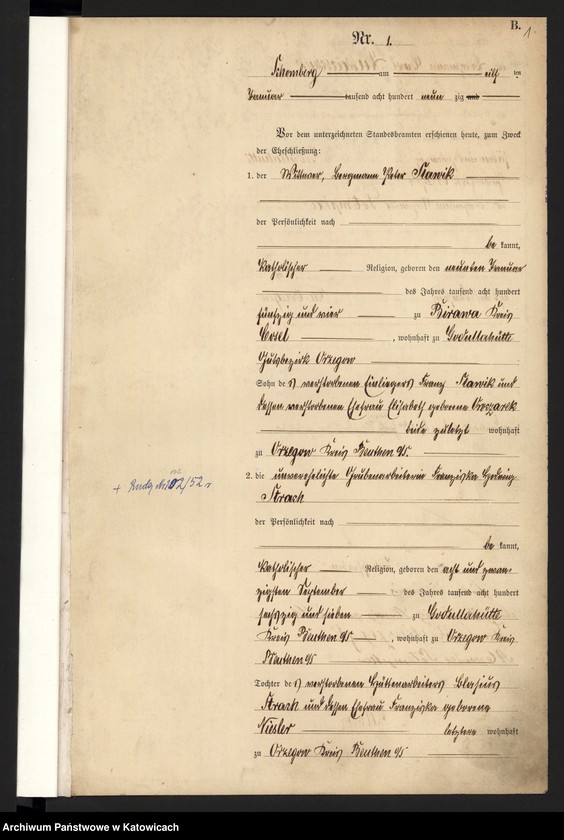 B.
1.
Nr. 1.
Schomberg am eilf ten
Januar tausend acht hundert neun zig und
Vor dem unterzeichneten Standesbeamten erschienen heute, zum Zweck
der Eheschließung:
1. der Wittwer, Bergmann Peter Slawik
der Persönlichkeit nach
be kannt,
katholischer Religion, geboren den neunten Januar
des Jahres tausend acht hundert
fünfzig und vier zu Birawa Kreis
Cosel , wohnhaft zu Godullahütte
Gutsbezirk Orzegow
Sohn des verstorbenen Einliegers Franz Slawik und
dessen verstorbenen Ehefrau Elisabeth geborene
beide zuletzt wohnhaft
zu Orzegow Kreis Beuthen O/S.
2. die unverehelichte Grubenarbeiterin Franziska Hedwig
der Persönlichkeit nach
be kannt,
katholischer Religion, geboren den acht und zwan-
zigsten September des Jahres tausend acht hundert
sechszig und sieben zu Godullahütte
Kreis Beuthen O/S , wohnhaft zu Orzegow Kreis
Beuthen O/S
Tochter des verstorbenen Hüttenarbeiters Blasius
und dessen Ehefrau Franziska geborene
letztere wohnhaft
zu Orzegow Kreis Beuthen O/S
Archiwum Państwowe w Katowicach